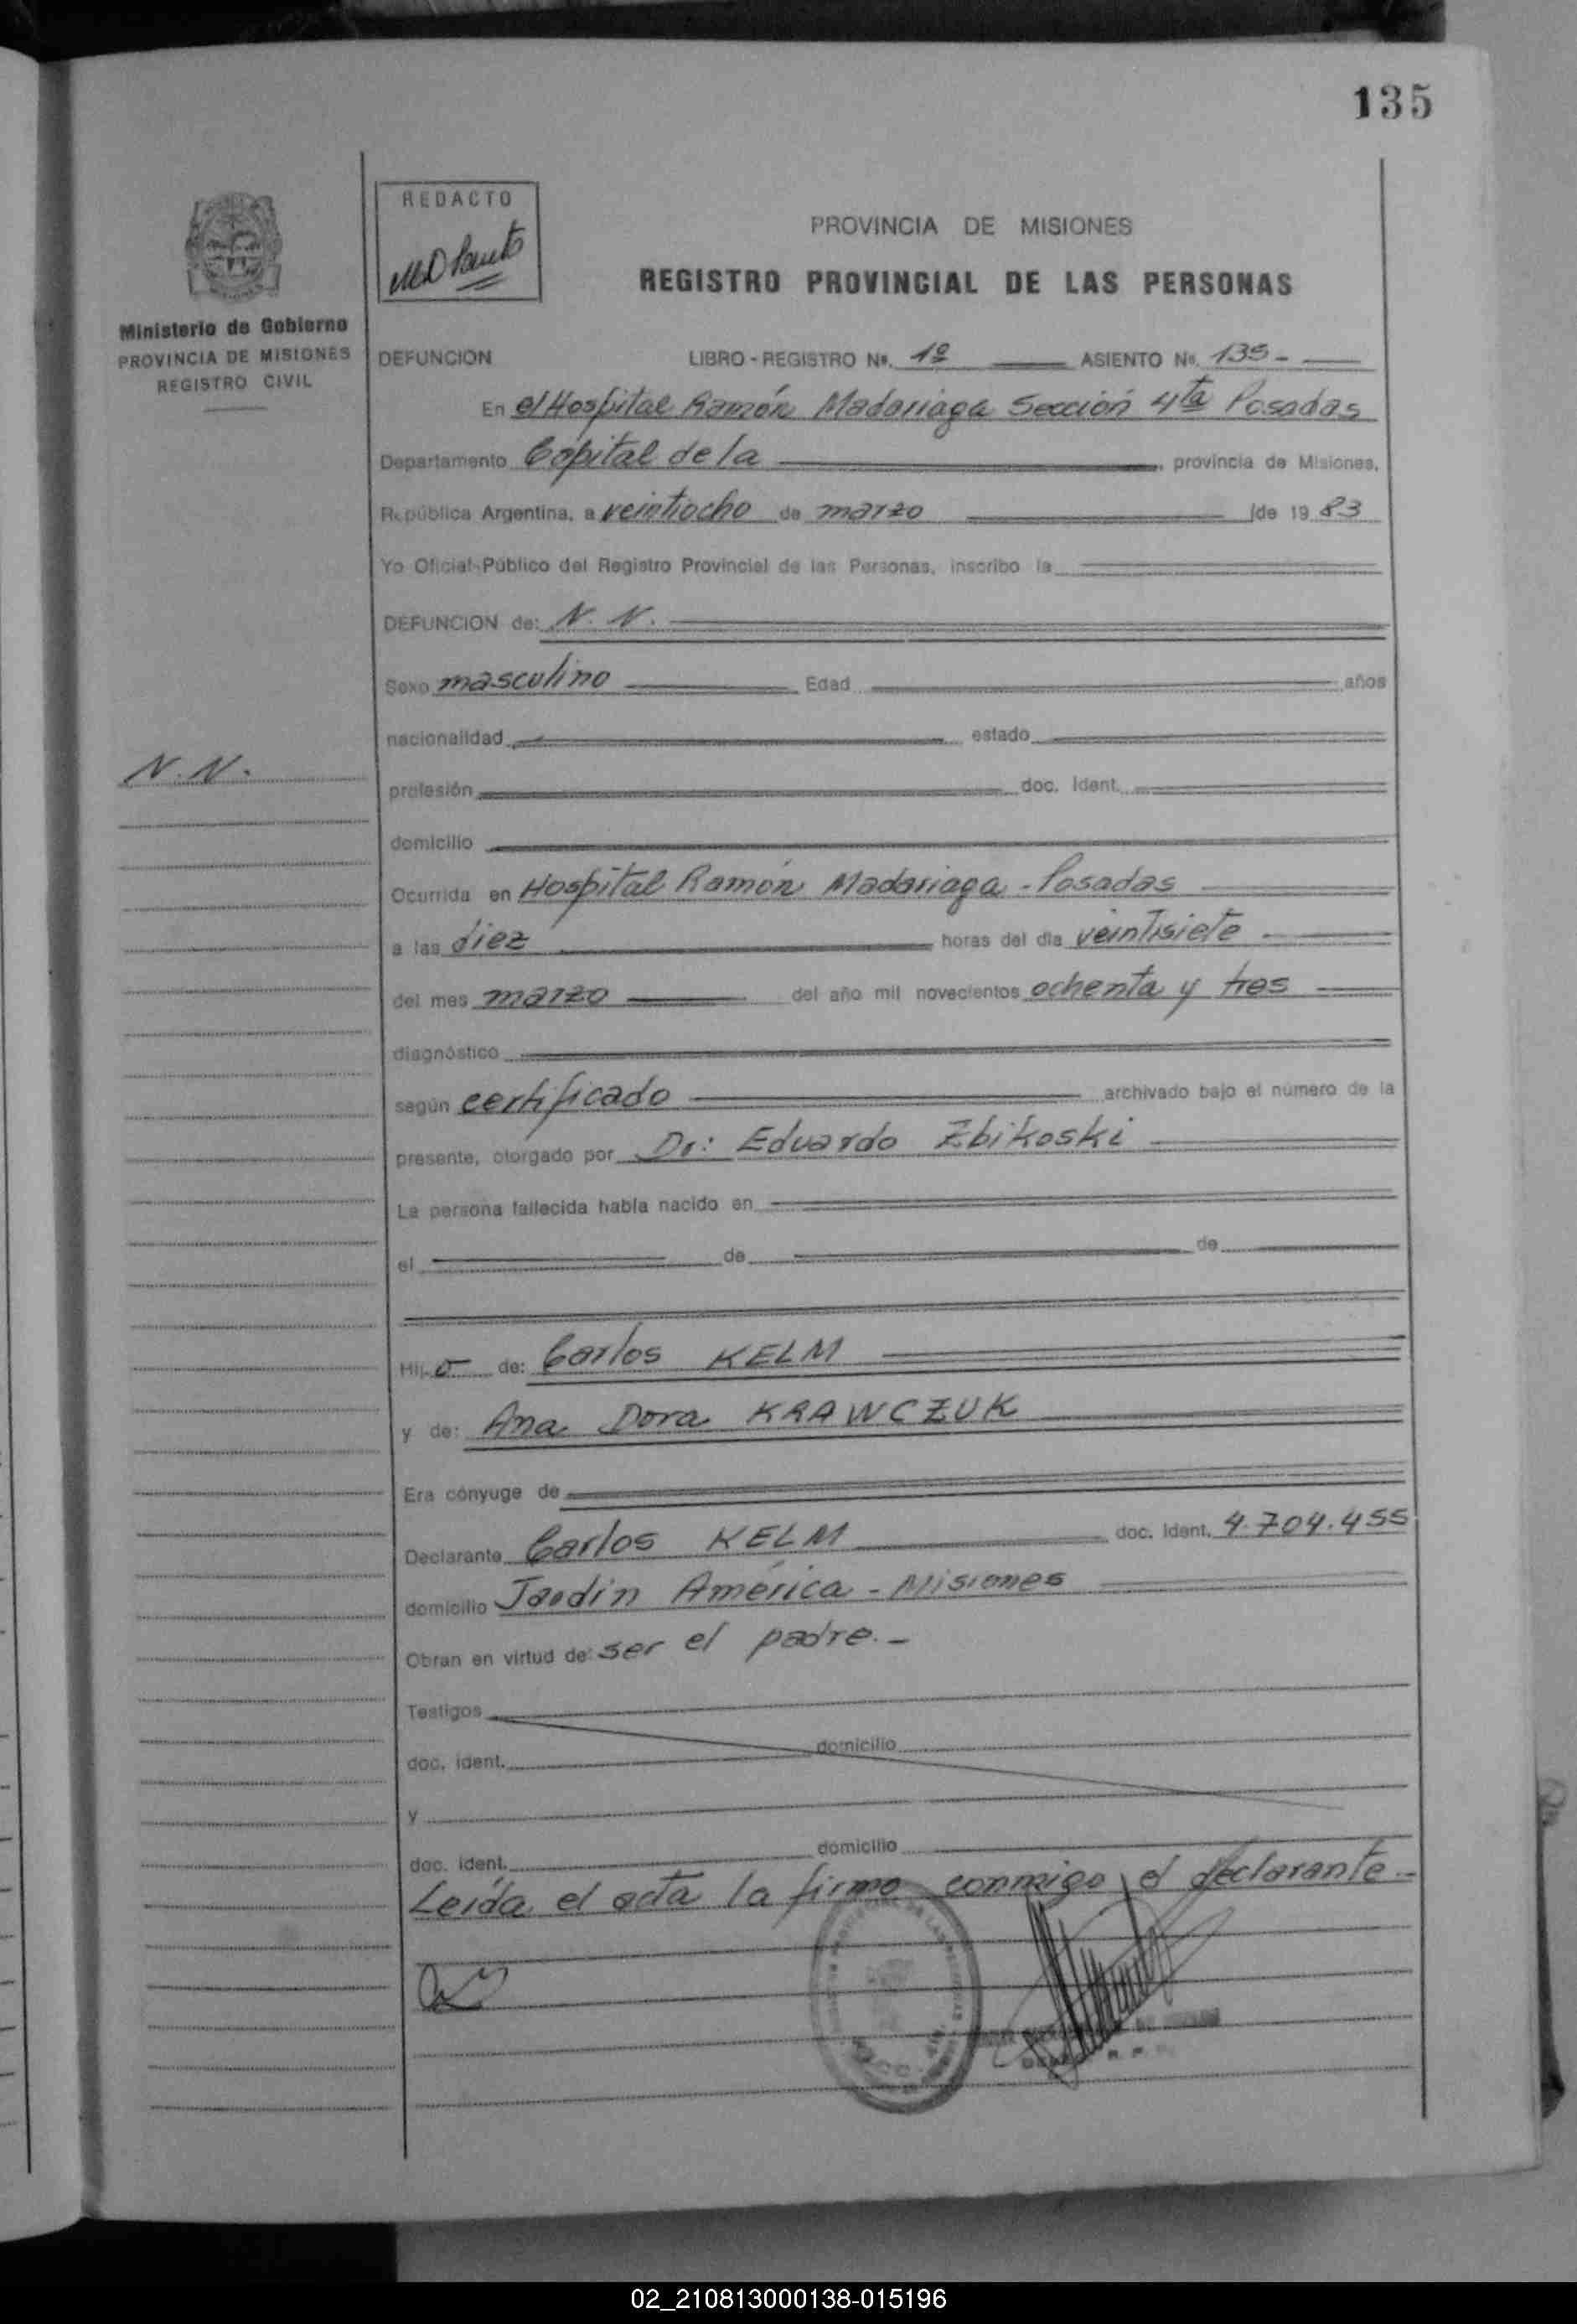 135
REDACTO
PROVINCIA DE MISIONES
REGISTRO PROVINCIAL DE LAS PERSONAS
Ministerio de Gobierno
PROVINCIA DE MISIONES
REGISTRO CIVIL
DEFUNCION LIBRO - REGISTRO Nº. 1º ASIENTO Nº. 135 -
En el Hospital Ramón Madariaga Sección 4ta Posadas
Departamento Capital de la , provincia de Misiones,
República Argentina, a veintiocho de marzo de 19 83
Yo Oficial Público del Registro Provincial de las Personas, inscribo la
DEFUNCION de: N. N.
Sexo masculino Edad años
nacionalidad estado
N. N.
profesión doc. ident.
domicilio
Ocurrida en Hospital Ramón Madariaga - Posadas
a las diez horas del día veintisiete
del mes marzo del año mil novecientos ochenta y tres
diagnóstico
según certificado archivado bajo el número de la
presente, otorgado por Dr: Eduardo Zbikoski
La persona fallecida había nacido en
el de de
Hijo de: Carlos KELM
y de: Ana Dora KRAWCZUK
Era cónyuge de
Declarante Carlos KELM doc. ident. 4.704.455
domicilio Jardín América - Misiones
Obran en virtud de: ser el padre. -
Testigos
doc. ident. domicilio
y
doc. ident. domicilio
Leída el acta la firma conmigo el declarante. -
02_210813000138-015196